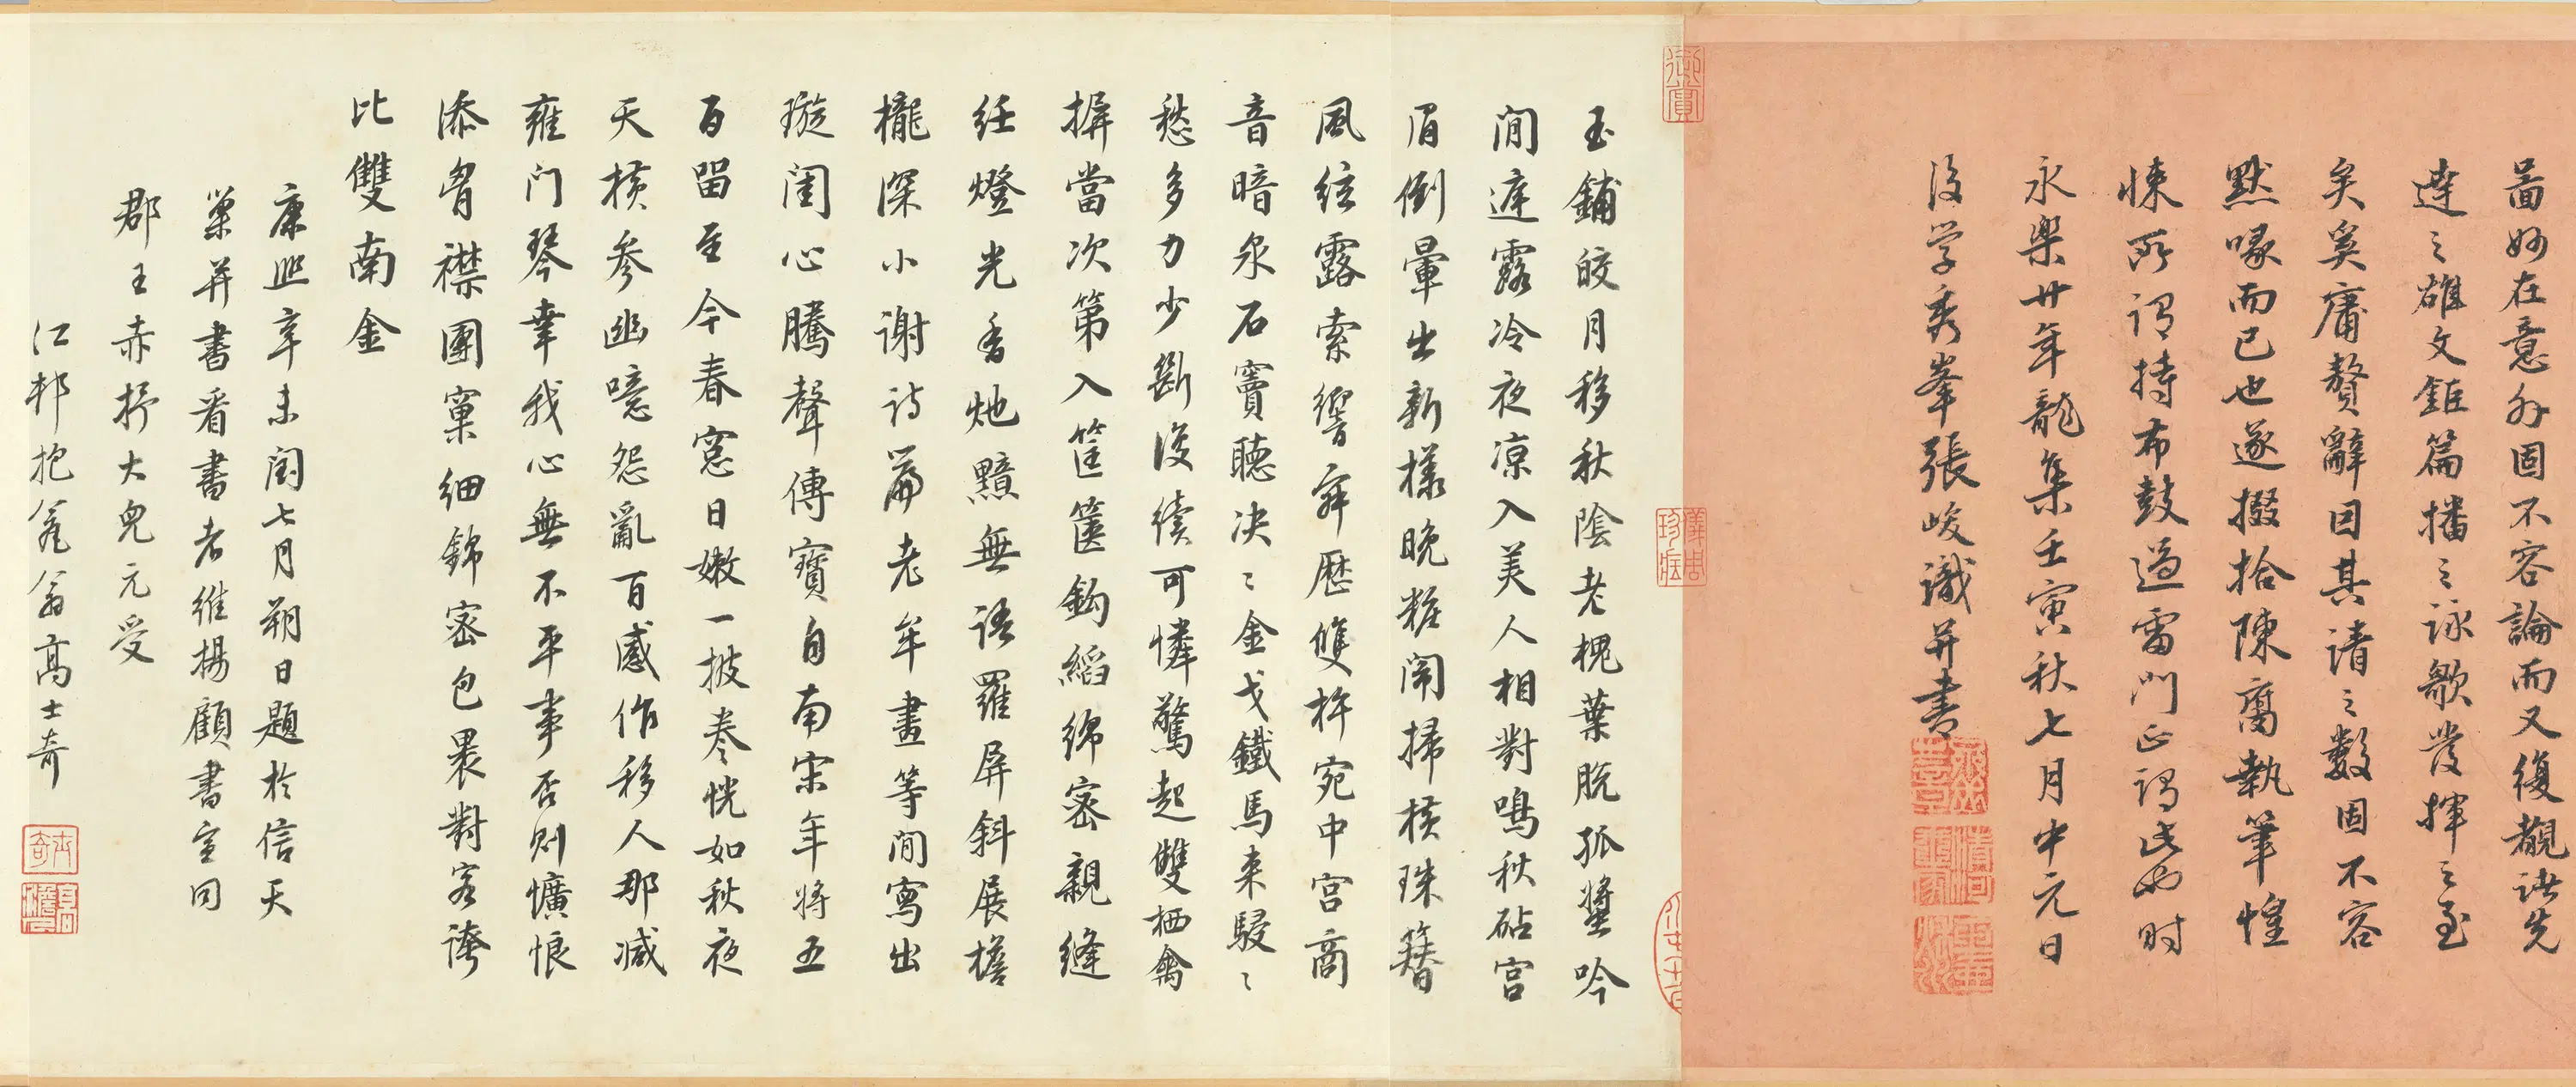 啚妙在意外固不容論而又復覩諸先
達之雄文鉅篇播之詠歌發揮之至
矣奚庸贅辭因其請之數固不容
默喙而已也遂掇拾陳腐執筆惶
悚所謂持布鼓過雷門正謂此也时
永樂廿年龍集壬寅秋七月中元日
後学秀峯張峻識并書
玉鋪皎月移秋陰老槐葉脱孤螿吟
閒庭露冷夜凉入美人相對鳴秋砧宫
眉倒暈出新様晚粧閙掃横珠簪
風絃露索響寂歷雙杵宛中宫商
音暗泉石竇聽决〻金戈鐵馬来駸〻
愁多力少斷復續可憐驚起雙栖禽
摒當次第入筐篋鈎縚綿密親縫
絍燈光香灺黯無語羅屏斜展攙
櫳深小謝詩篇老牟畫等閒寫出
璇閨心騰聲傳寶自南宋年將五
百留至今春窓日嫩一披卷恍如秋夜
天横参幽噫怨亂百感作移人那減
雍门琴幸我心無不平事否则懭悢
添胷襟團窠细錦密包裹對客誇
比雙南金
康熙辛未閏七月朔日題於信天
巢并書看書者維揚顧書宣同
郡王赤抒大兒元受
江邨抱瓮翁高士奇
士奇